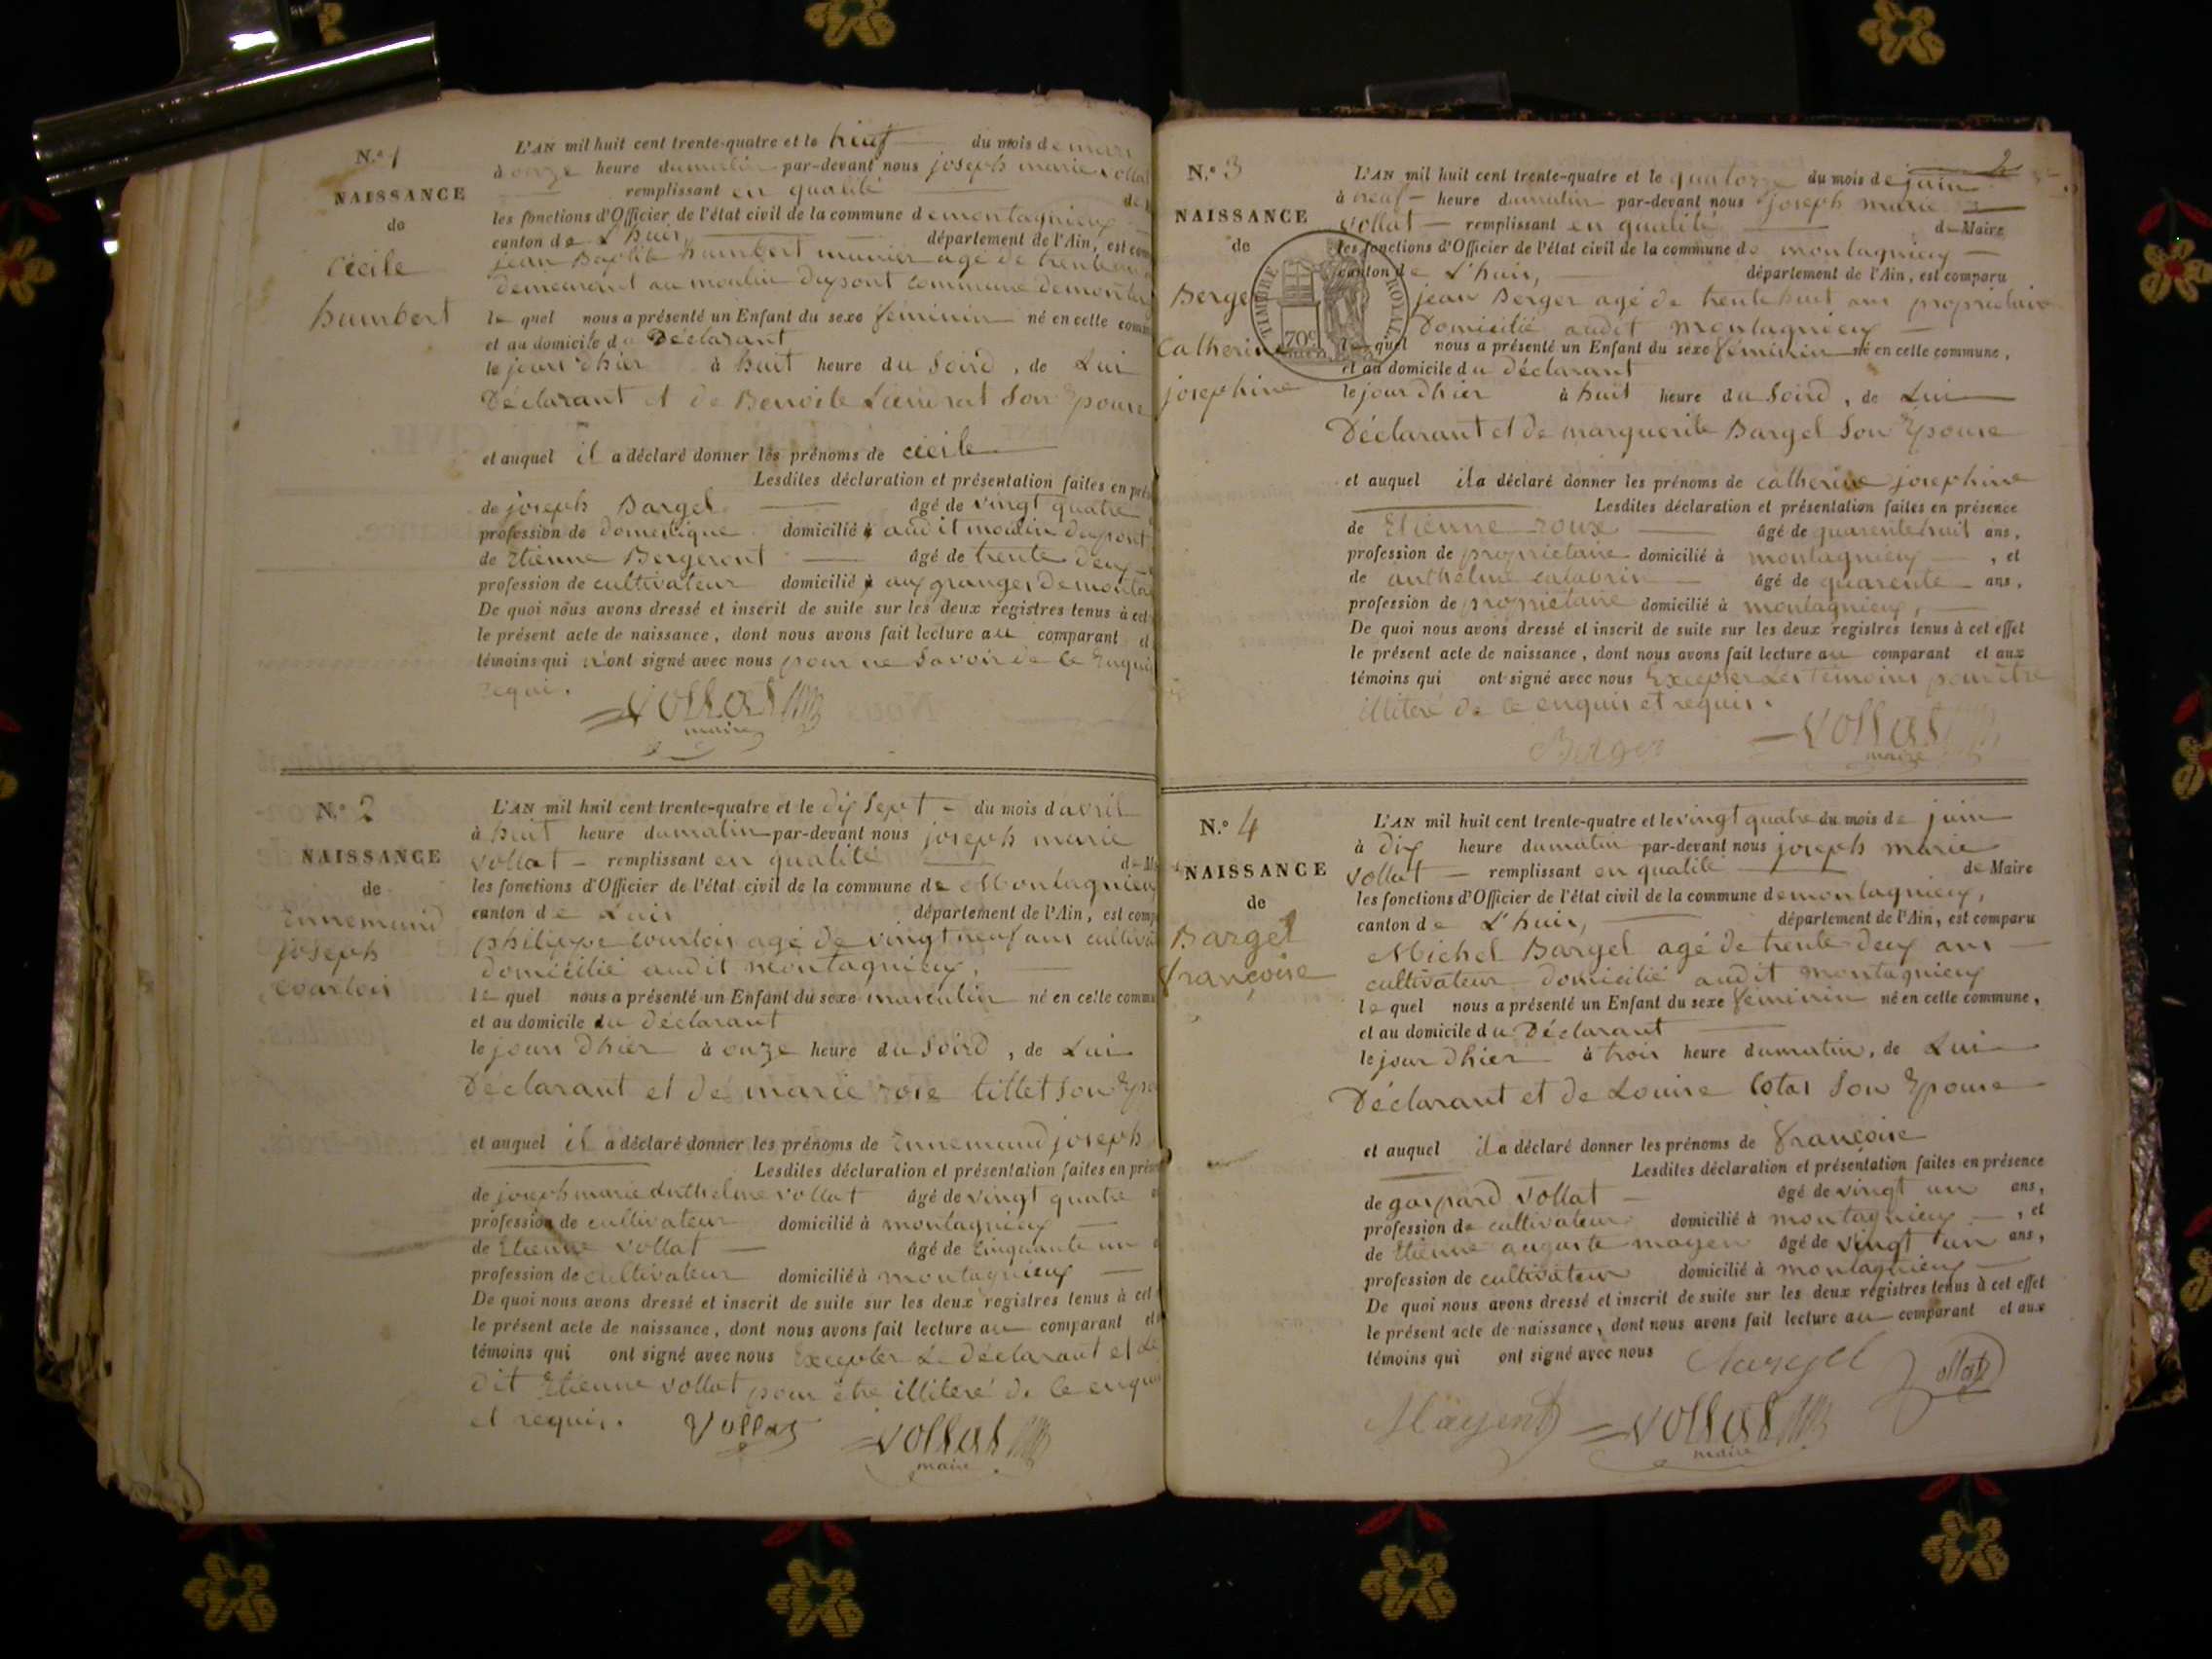 N.º 1
NAISSANCE
de
Cécile
humbert
L'AN mil huit cent trente-quatre et le neuf du mois de mars
à onze heure du matin par-devant nous joseph marie vollat
remplissant en qualité
les fonctions d'Officier de l'état civil de la commune de montagnieu
canton de L'huis, département de l'Ain, est com
jean Baptite humbert munier agé de trente
demeurant au moulin dupont commune de montag
le quel nous a présenté un Enfant du sexe féminin né en cette comm
et au domicile du Déclarant
le jour d'hier à huit heure du Soird, de Lui
Déclarant et de Benoite Son Epouse
et auquel il a déclaré donner les prénoms de cécile
Lesdites déclaration et présentation faites en prés
de joseph Bargel âgé de vingt quatre
profession de domestique domicilié à audit moulin dupont
de Etienne Bergeront âgé de trente deux
profession de cultivateur domicilié à aux granges de monta
De quoi nous avons dressé et inscrit de suite sur les deux registres tenus à cet
le présent acte de naissance, dont nous avons fait lecture au comparant et
témoins qui n'ont signé avec nous pour ne Savoir de ce Enquis
requi.
Vollat
maire
N.º 2
NAISSANCE
de
Ennemund
joseph
Courtois
L'AN mil huit cent trente-quatre et le dix Sept du mois d'avril
à huit heure du matin par-devant nous joseph marie
vollat remplissant en qualité de M
les fonctions d'Officier de l'état civil de la commune de Montagnieu
canton de Luis département de l'Ain, est comp
philippe Courtois agé de vingt neuf ans cultiva
domicilié audit montagnieu,
le quel nous a présenté un Enfant du sexe masculin né en cette commu
et au domicile du déclarant
le jour d'hier à onze heure du Soird, de Lui
Déclarant et de marie rose tillet Son Epo
et auquel il a déclaré donner les prénoms de Ennemund joseph
Lesdites déclaration et présentation faites en prés
de joseph marie Anthelme vollat âgé de vingt quatre
profession de cultivateur domicilié à montagnieu
de Etienne vollat âgé de Cinquante un
profession de cultivateur domicilié à montagnieu
De quoi nous avons dressé et inscrit de suite sur les deux registres tenus à cet
le présent acte de naissance, dont nous avons fait lecture au comparant et
témoins qui ont signé avec nous Excepter Le déclarant et Le
dit Etienne vollat pour être illiteré de ce enquis
et requis. Vollat Vollat
maire
2
N.º 3
NAISSANCE
de
Berger
Catherine
josephine
TIMBRE ROYAL
70c
L'AN mil huit cent trente-quatre et le quatorze du mois de juin
à neuf heure du matin par-devant nous joseph marie
vollat remplissant en qualité de Maire
les fonctions d'Officier de l'état civil de la commune de montagnieu
canton de L'huis, département de l'Ain, est comparu
jean Berger agé de trente huit ans propriétaire
Domicilié audit montagnieu
le quel nous a présenté un Enfant du sexe féminin né en cette commune,
et au domicile du déclarant
le jour d'hier à huit heure du Soird, de Lui
Déclarant et de marguerite Bargel Son Epouse
et auquel il a déclaré donner les prénoms de catherine josephine
Lesdites déclaration et présentation faites en présence
de Etienne roux âgé de quarente huit ans,
profession de propriétaire domicilié à montagnieu, et
de anthelme calabrin âgé de quarente ans,
profession de propriétaire domicilié à montagnieu,
De quoi nous avons dressé et inscrit de suite sur les deux registres tenus à cet effet
le présent acte de naissance, dont nous avons fait lecture au comparant et aux
témoins qui ont signé avec nous Excepter Les témoins pour être
illiteré de ce enquis et requis.
Berger Vollat
maire
N.º 4
NAISSANCE
de
Bargel
françoise
L'AN mil huit cent trente-quatre et le vingt quatre du mois de juin
à dix heure du matin par-devant nous joseph marie
vollat remplissant en qualité de Maire
les fonctions d'Officier de l'état civil de la commune de montagnieu,
canton de L'huis, département de l'Ain, est comparu
Michel Bargel agé de trente deux ans
cultivateur domicilié audit montagnieu
le quel nous a présenté un Enfant du sexe féminin né en cette commune,
et au domicile du Déclarant
le jour d'hier à trois heure du matin, de Lui
Déclarant et de Louise Cotas Son Epouse
et auquel il a déclaré donner les prénoms de françoise
Lesdites déclaration et présentation faites en présence
de gaspard vollat âgé de vingt un ans,
profession de cultivateur domicilié à montagnieu, et
de Etienne auguste mayen âgé de vingt un ans,
profession de cultivateur domicilié à montagnieu
De quoi nous avons dressé et inscrit de suite sur les deux registres tenus à cet effet
le présent acte de naissance, dont nous avons fait lecture au comparant et aux
témoins qui ont signé avec nous Bargel Vollat
Mayen Vollat
maire